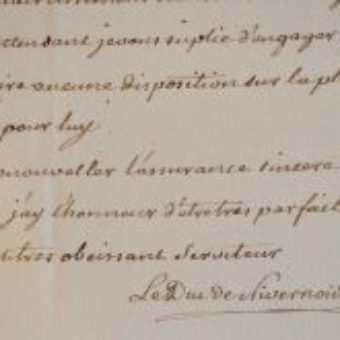 attendant je vous suplie d'engager
aire aucune disposition sur la pl
pour luy.
enouveller l'assurance sincere
j'ay l'honneur d'etre tres parfait
tres obeissant Serviteur
Le Duc de Nivernois